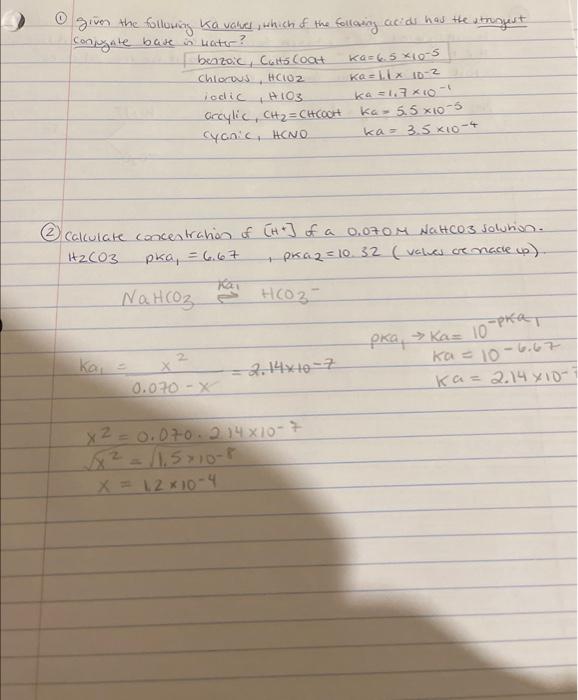 ① given the following Ka values, which of the following acids has the strongest
conjugate base in water?
benzoic, C6H5COOH Ka = 6.5 x10-5
chlorous, HClO2 Ka = 1.1 x 10-2
iodic, HIO3 Ka = 1.7 x10-1
acrylic, CH2=CHCOOH Ka = 5.5 x10-5
cyanic, HCNO Ka = 3.5 x10-4
② Calculate concentration of [H+] of a 0.070 M NaHCO3 solution.
H2CO3 pKa1 = 6.67 , pKa2 = 10.32 (values are made up).
NaHCO3 ⇌ Ka1 HCO3-
pKa1 → Ka = 10-pKa1
Ka = 10-6.67
Ka = 2.14 x10-7
Ka1 = x2 / 0.070 - x = 2.14x10-7
x2 = 0.070 · 2.14 x10-7
√x2 = √1.5 x10-8
x = 1.2 x10-4